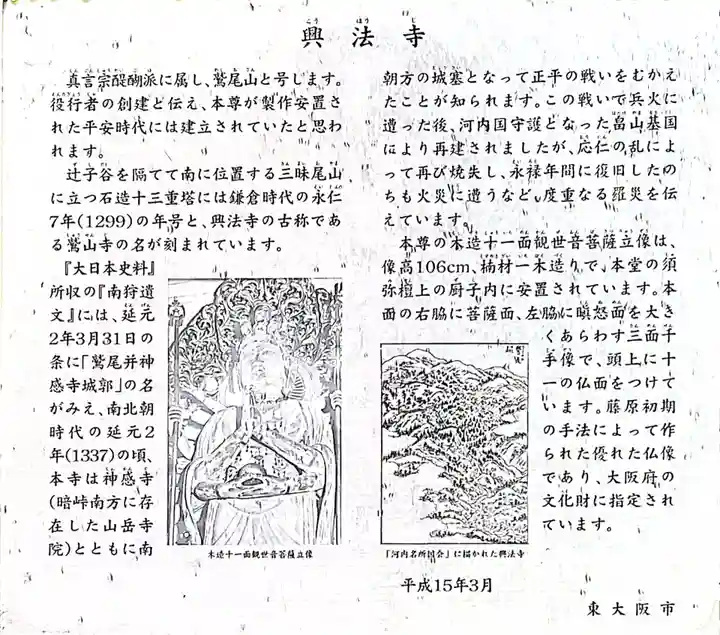 興法寺
こう ほう じ
真言宗醍醐派に属し、鷲尾山と号します。
役行者の創建と伝え、本尊が製作安置さ
れた平安時代には建立されていたと思わ
れます。
辻子谷を隔てて南に位置する三昧尾山
に立つ石造十三重塔には鎌倉時代の永仁
7年(1299)の年号と、興法寺の古称であ
る鷲山寺の名が刻まれています。
『大日本史料』
所収の『南狩遺
文』には、延元
2年3月31日の
条に「鷲尾并神
感寺城郭」の名
がみえ、南北朝
時代の延元2
年(1337)の頃、
本寺は神感寺
(暗峠南方に存
在した山岳寺
院)とともに南
木造十一面観世音菩薩立像
朝方の城塞となって正平の戦いをむかえ
たことが知られます。この戦いで兵火に
遭った後、河内国守護となった畠山基国
により再建されましたが、応仁の乱によ
って再び焼失し、永禄年間に復旧したの
ちも火災に遭うなど、度重なる羅災を伝
えています。
本尊の木造十一面観世音菩薩立像は、
像高106cm、柿材一木造りで、本堂の須
弥檀上の厨子内に安置されています。本
面の右脇に菩薩面、左脇に瞋怒面を大き
くあらわす三面千
手像で、頭上に十
一の仏面をつけて
います。藤原初期
の手法によって作
られた優れた仏像
であり、大阪府の
文化財に指定され
ています。
「河内名所図会」に描かれた興法寺
平成15年3月
東大阪市